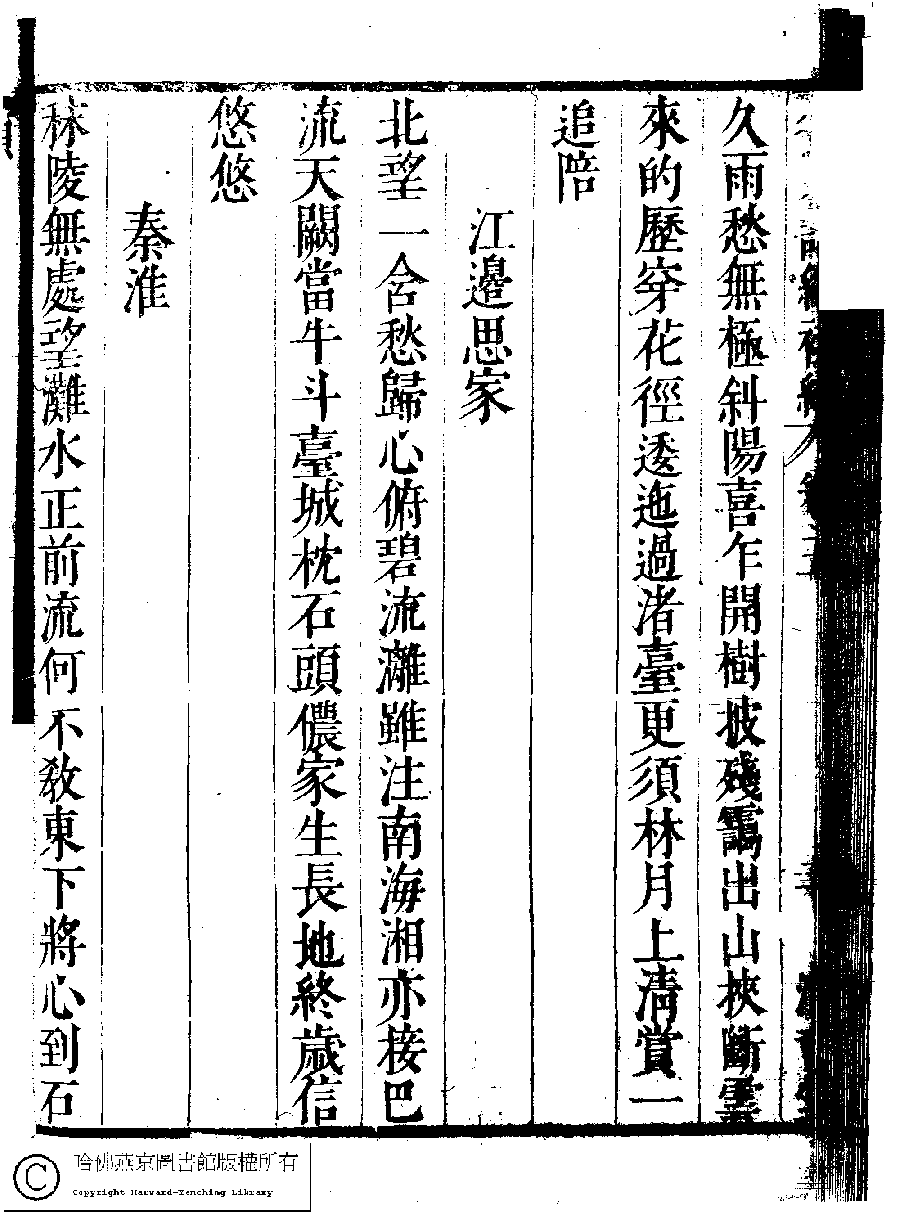 久雨愁無極斜陽喜乍開樹披殘靄出山挾斷雲
來的歷穿花徑逶迤過渚臺更須林月上清賞一
追陪
江邊思家
北望一含愁歸心俯碧流灕雖注南海湘亦接巴
流天闕當牛斗臺城枕石頭儂家生長地終歲信
悠悠
秦淮
秣陵無處望灘水正前流何不教東下將心到石
哈佛燕京圖書館版權所有
Copyright Harvard-Yenching Library